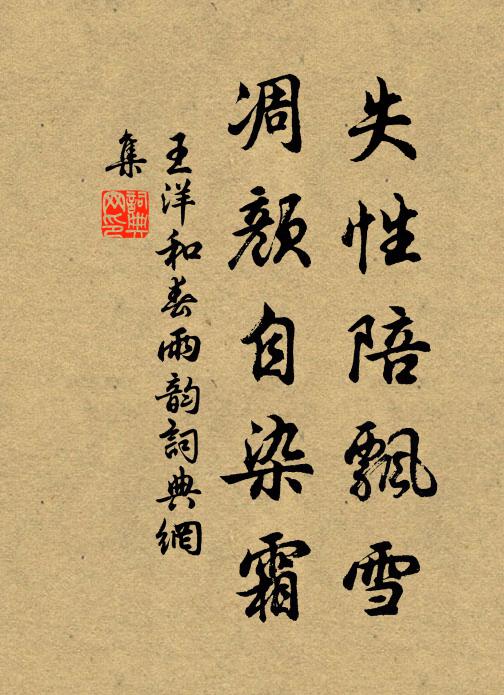 失性陪飄雪
凋顏自染霜
王洋和春雨韵詞典網
集
詞典網印